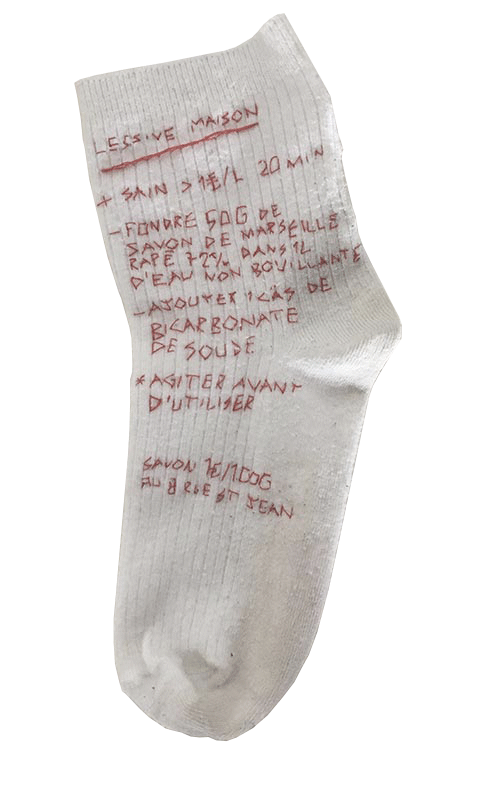 LESSIVE MAISON
+ SAIN > 1€/L 20 MIN
- FONDRE 50G DE
SAVON DE MARSEILLE
RAPÉ 72% DANS 1L
D'EAU NON BOUILLANTE
- AJOUTER 1 CÀS DE
BICARBONATE
DE SOUDE
* AGITER AVANT
D'UTILISER
SAVON 1€/100G
AU 8 RUE ST JEAN